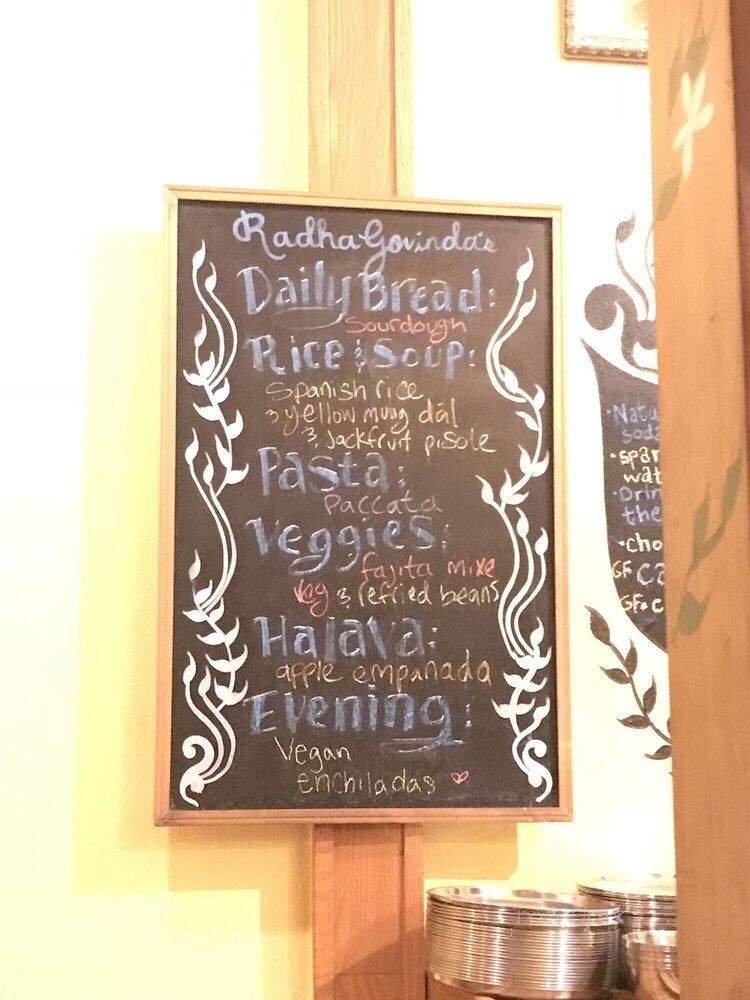 RadhaGovinda's
Daily Bread:
sourdough
Rice & Soup:
Spanish rice
& yellow mung dal
& Jackfruit pisole
Pasta:
Paccata
Veggies:
fajita mixe
veg & refried beans
Halava:
apple empanada
Evening:
Vegan
enchiladas
·Natu
soda
·spar
wat
·Drin
the
·cho
GF C
GF· C